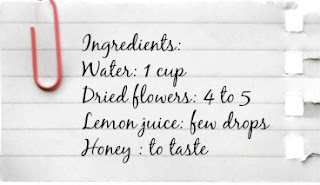 Ingredients:
Water: 1 cup
Dried flowers: 4 to 5
Lemon juice: few drops
Honey : to taste